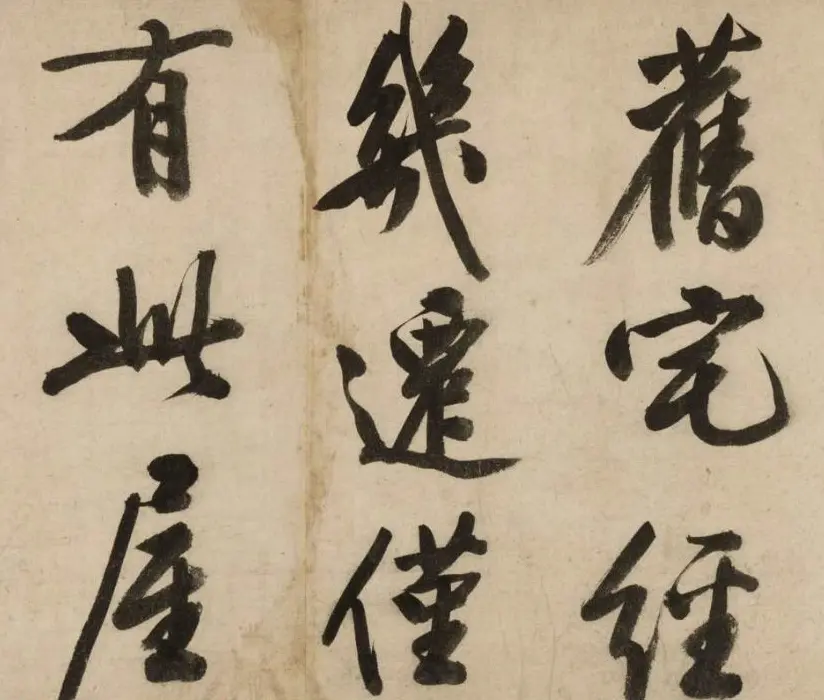 舊宅經
幾遷僅
有此屋